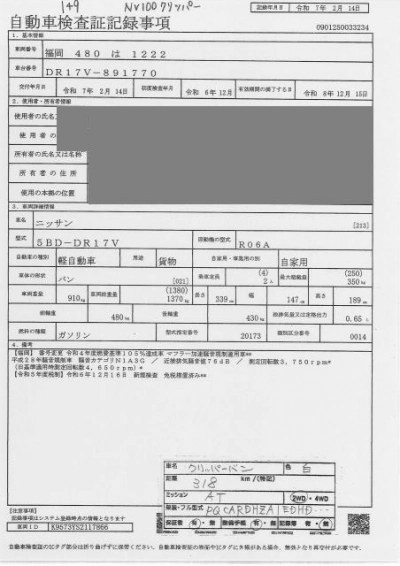 149 NV100クリッパー
自動車検査証記録事項
記録年月日 令和 7年 2月14日
0901250033234
1. 基本情報
車両番号 福岡 480 は 1222
車台番号 DR17V-891770
交付年月日 令和 7年 2月14日 初度検査年月 令和 6年12月 有効期間の満了する日 令和 8年12月15日
2. 使用者・所有者情報
使用者の氏名又
使用者の
所有者の氏名又は名称
所有者の住所
使用の本拠の位置
3. 車両詳細情報
車名 ニッサン [213]
型式 5BD-DR17V 原動機の型式 R06A
自動車の種別 軽自動車 用途 貨物 自家用・事業用の別 自家用
車体の形状 バン [021] 乗車定員 (4) 2人 最大積載量 (250) 350kg
車両重量 910kg 車両総重量 (1380) 1370kg 長さ 339cm 幅 147cm 高さ 189cm
前軸重 480kg 後軸重 430kg 総排気量又は定格出力 0.65L
燃料の種類 ガソリン 型式指定番号 20173 類別区分番号 0014
4. 備考
[福岡] 番号変更 令和4年度燃費基準105%達成車 マフラー加速騒音規制適用車**
平成28年騒音規制車 騒音カテゴリN1A3G / 近接排気騒音値76dB / 測定回転数3,750rpm*
(旧基準適用時測定回転数4,650rpm)*
[令和5年度税制]令和6年12月16日 新規検査 免税措置済み**
車名 クリッパーバン 色 白
距離 318 km/(特定)
ミッション AT 2WD・4WD
類・フル型式 PQCARDHZA1EDHD...
保証書 有・無 取説 有・無 記録簿 有・無
[注意事項]
記録事項はシステム登録時点の情報となります
車両ID K9573YS2117866
自動車検査証のICタグ部分は折り曲げずに保管ください。自動車検査証の券面やICタグに汚損がある場合、無効となり再交付が必要です。